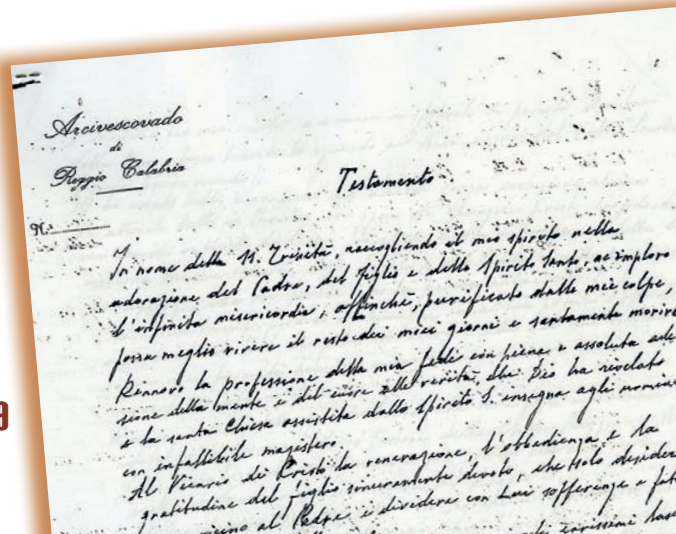 Arcivescovado
di
Reggio Calabria
N.
Testamento
In nome della SS. Trinità, raccogliendo il mio spirito nella
adorazione del Padre, del Figlio e dello Spirito Santo, ne imploro
l'infinita misericordia, affinché, purificato dalle mie colpe,
possa meglio vivere il resto dei miei giorni e santamente morire
Rinnovo la professione della mia fede con piena e assoluta ade
sione della mente e del cuore alle verità, che Dio ha rivelato
e la santa Chiesa assistita dallo Spirito S. insegna agli uomini
con infallibile magistero.
Al Vicario di Cristo la venerazione, l'obbedienza e la
gratitudine del figlio sinceramente devoto, che solo desidera
vicino al Padre e dividere con Lui sofferenze e
carissimi
9